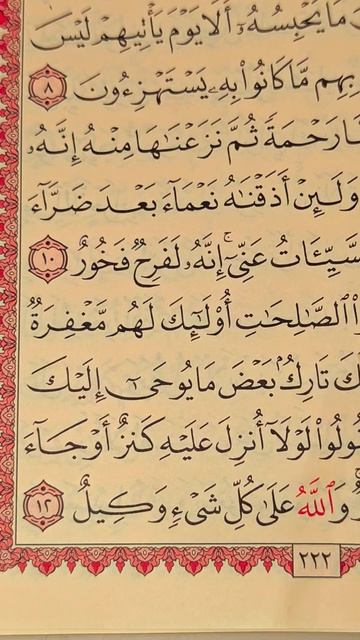 مَا يَحْبِسُهُۥٓ أَلَا يَوْمَ يَأْتِيهِمْ لَيْسَ
بِهِم مَّا كَانُوا۟ بِهِۦ يَسْتَهْزِءُونَ ٨
رَحْمَةً ثُمَّ نَزَعْنَٰهَا مِنْهُ إِنَّهُۥ
وَلَئِنْ أَذَقْنَٰهُ نَعْمَآءَ بَعْدَ ضَرَّآءَ
ٱلسَّيِّـَٔاتُ عَنِّىٓ ۚ إِنَّهُۥ لَفَرِحٌ فَخُورٌ ١٠
ٱلصَّٰلِحَٰتِ أُو۟لَٰٓئِكَ لَهُم مَّغْفِرَةٌ
كَ تَارِكٌۢ بَعْضَ مَا يُوحَىٰٓ إِلَيْكَ
يَقُولُوا۟ لَوْلَآ أُنزِلَ عَلَيْهِ كَنزٌ أَوْ جَآءَ
وَٱللَّهُ عَلَىٰ كُلِّ شَىْءٍ وَكِيلٌ ١٢
٢٢٢